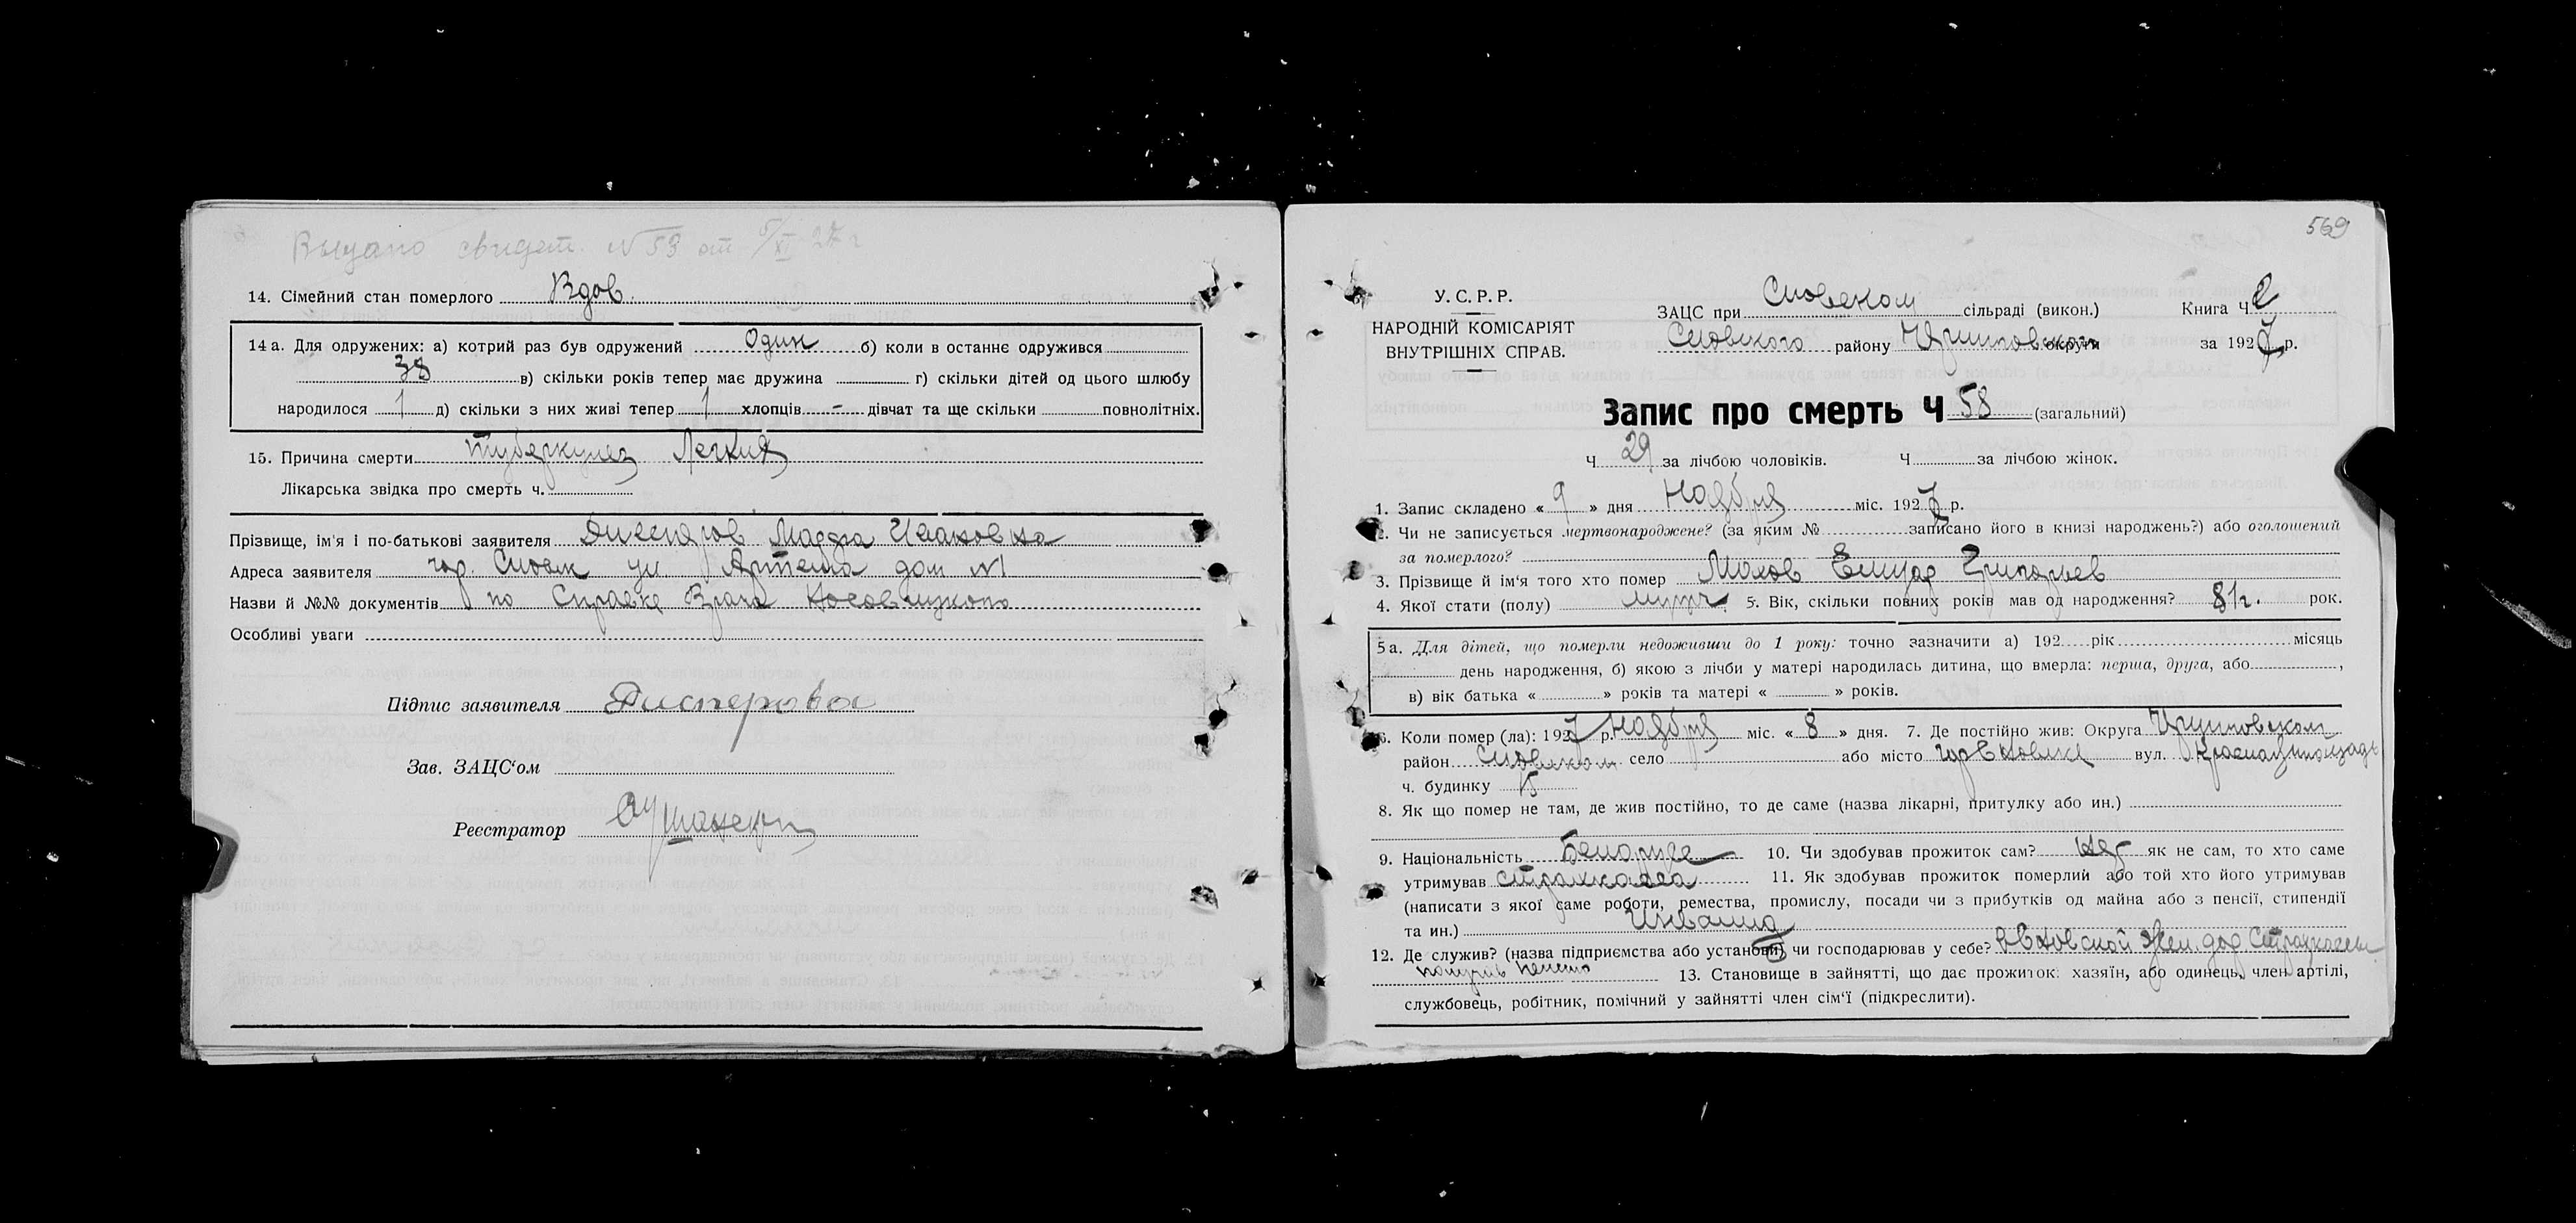 Выдано свидет. N 53 от 5/XI 27 г
14. Сімейний стан померлого Вдов.
14 а. Для одружених: а) котрий раз був одружений Один б) коли в останнє одружився
38 в) скільки років тепер має дружина г) скільки дітей од цього шлюбу
народилося 1 д) скільки з них живі тепер 1 хлопців - дівчат та ще скільки повнолітніх.
15. Причина смерти Туберкулез Легких
Лікарська звідка про смерть ч.
Прізвище, ім'я і по-батькові заявителя Ивановна
Адреса заявителя гор. ул. Артема дом N1
Назви й №№ документів по Справке Врача
Особливі уваги
Підпис заявителя
Зав. ЗАЦС'ом
Реєстратор
569
У. С. Р. Р.
НАРОДНІЙ КОМІСАРІЯТ
ВНУТРІШНІХ СПРАВ.
ЗАЦС при сільраді (викон.) Книга Ч 2
району округи за 1927 р.
Запис про смерть Ч 58 (загальний)
Ч 29 за лічбою чоловіків. Ч за лічбою жінок.
1. Запис складено « 9 » дня Ноября міс. 1927 р.
2. Чи не записується мертвонароджене? (за яким № записано його в книзі народжень?) або оголошений
за померлого?
3. Прізвище й ім'я того хто помер Григорьев
4. Якої стати (полу) Мужч. 5. Вік, скільки повних років мав од народження? 81 г. рок.
5 а. Для дітей, що померли недоживши до 1 року: точно зазначити а) 192 рік місяць
день народження, б) якою з лічби у матері народилась дитина, що вмерла: перша, друга, або ,
в) вік батька « » років та матері « » років.
6. Коли помер (ла): 1927 р. Ноября міс. « 8 » дня. 7. Де постійно жив: Округа
район село або місто вул.
ч. будинку 15
8. Як що помер не там, де жив постійно, то де саме (назва лікарні, притулку або ин.)
9. Національність Белорусс 10. Чи здобував прожиток сам? Нет як не сам, то хто саме
утримував страхкасса 11. Як здобував прожиток померлий або той хто його утримував
(написати з якої саме роботи, ремества, промислу, посади чи з прибутків од майна або з пенсії, стипендії
та ин.) Инвалид
12. Де служив? (назва підприємства або установи) чи господарював у себе?
13. Становище в зайнятті, що дає прожиток: хазяїн, або одинець, член артілі,
службовець, робітник, помічний у зайнятті член сім'ї (підкреслити).